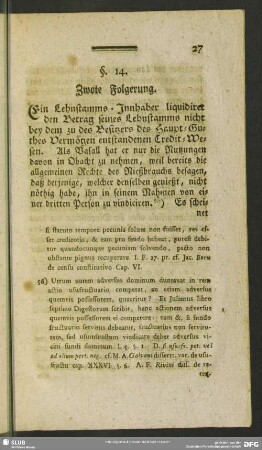 27
§. 14.
Zwote Folgerung.
Ein Lehnstamms-Innhaber liquidiret
den Betrag seines Lehnstamms nicht
bey dem zu des Besitzers des Haupt-Gu-
thes Vermögen entstandenen Credit-We-
sen. Als Vasall hat er nur die Nutzungen
davon in Obacht zu nehmen, weil bereits die
allgemeinen Rechte des Nießbrauchs besagen,
daß derjenige, welcher denselben genießt, nicht
nöthig habe, ihn in seinem Nahmen von ei-
ner dritten Person zu vindiciren. Es schei-
net
se statuto tempore pecunia solum non fuisset, res es-
set creditoris, & eam pro feudo haberet, potest debi-
tor quandocunque pecuniam solvendo, pacto non
obstante pignus recuperare I. F. 27. pr. cf. Jac.
de censu constitutivo Cap. VI.
Utrum autem adversus dominum dumtaxat in rem
actio usufructuario competat, an etiam adversus
quemvis possessorem, quæritur? Et Julianus libro
septimo Digestorum scribit, hanc actionem adversus
quemvis possessorem ei competere: nam &, si fundo
fructuario servitus debeatur, fructuarius non servitu-
tem, sed usumfructum vindicare debet adversus vi-
cini fundi dominum. L. 5. §. 1. D. si ususfr. pet. vel
ad alium pert. neg. cf. M. A. Galvani dissert. var. de usu-
fructu cap. XXXVI. §. 6. A. F. Rivini diss. de re-
SLUB